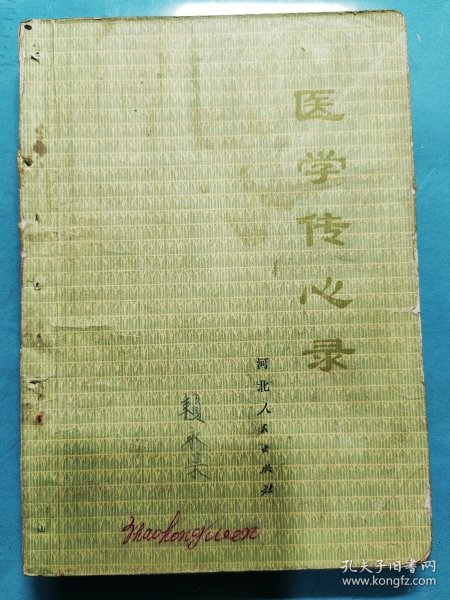 医学传心录
河北人民出版社
赖永
Zhaohongxueen
孔夫子旧书网
www.kongfz.com